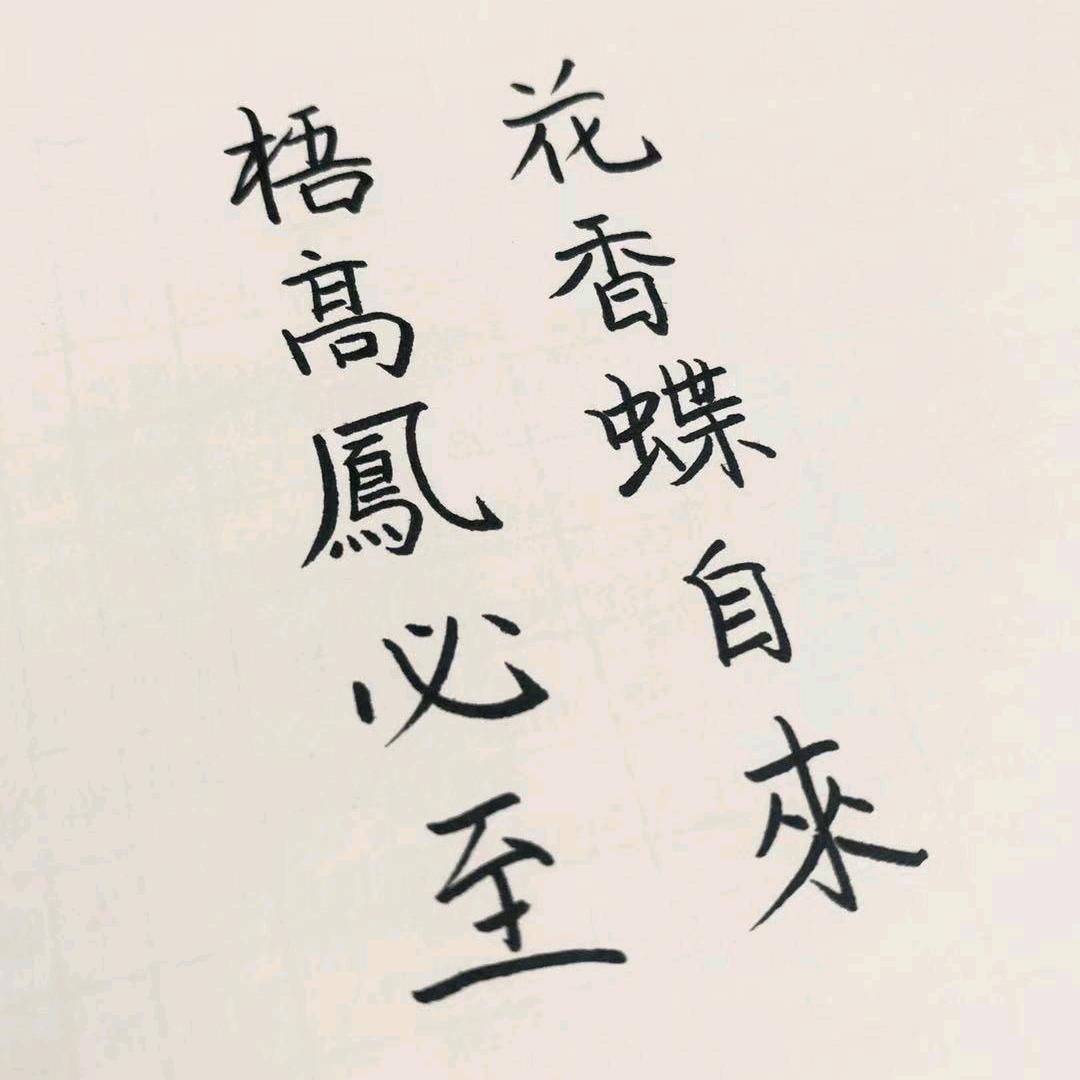 花香蝶自來
梧高鳳必至